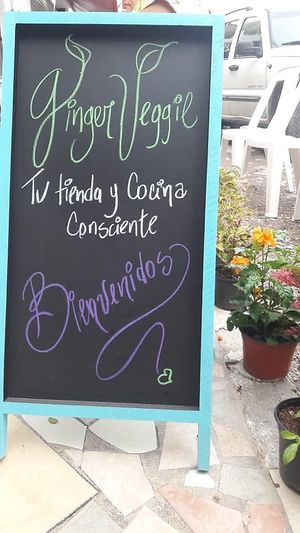 Ginger Veggie
Tu tienda y Cocina
Consciente
Bienvenidos